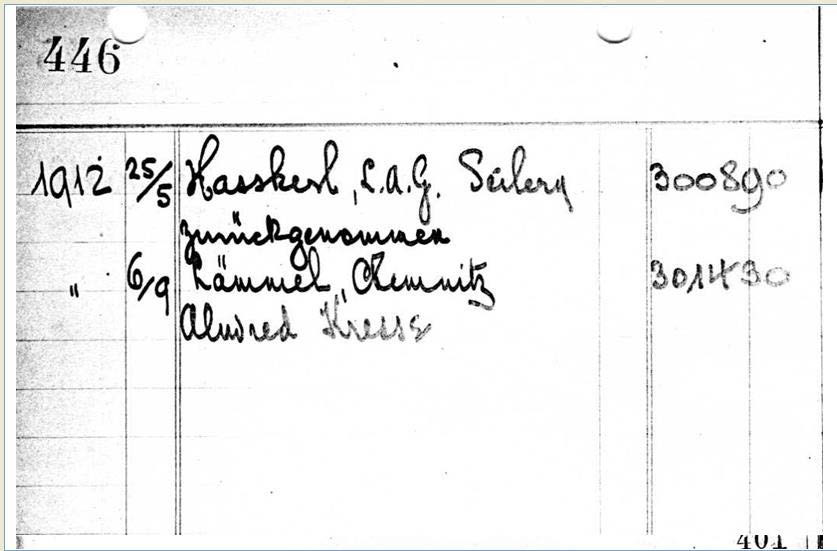 446
1912 25/5 Hasskerl, L.A.G. 300890
zurückgenommen
" 6/9 Lämmel, Chemnitz 301430
Kresse
401